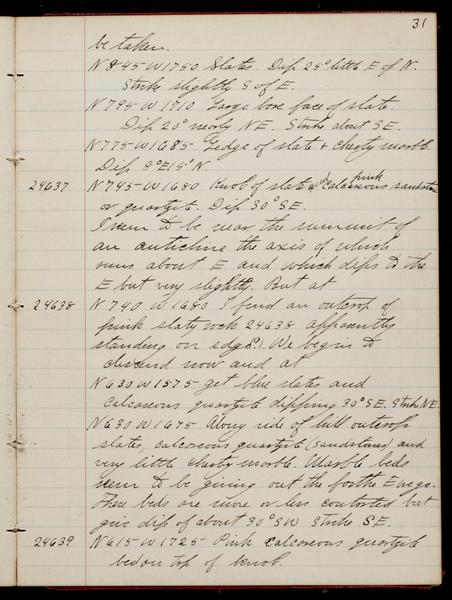 31
be taken.
N 845 - W 1750 Slates. Dip 25° little E of N.
Strike slightly S of E.
N 795 - W 1710 Large bare face of slate
Dip 20° nearly NE. Strike about SE.
N 775 - W 1685 - Ledge of slate & cherty marble.
Dip 8° E 15° N.
24637 N 745 - W 1680 Knob of slate and pink calcareous sandstone
or quartzite. Dip 30° SE.
I seem to be near the summit of
an anticline the axis of which
runs about E and which dips to the
E but very slightly. But at
24638 N 740 W 1680 I find an outcrop of
pink slaty rock 24638 apparently
standing on edge(?). We begin to
descend now and at
N 630 W 1575 get blue slates and
calcareous quartzite dipping 30° SE. Strike NE.
N 630 W 1675 Along side of hill outcrop
slates, calcareous quartzite (sandstone) and
very little cherty marble. Marble beds
seem to be giving out the farther E we go.
These beds are more or less contorted but
give dip of about 30° SW Strike SE.
24639 N 615 - W 1725 - Pink calcareous quartzite
bed on top of knob.